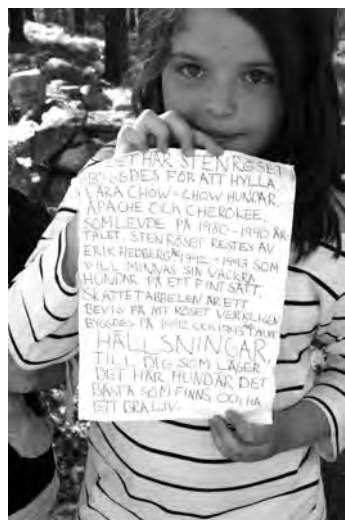 DET HÄR STENRÖSET
BYGGDES FÖR ATT HYLLA
VÅRA CHOW-CHOW HUNDAR.
APACHE OCH CHEROKEE.
SOM LEVDE PÅ 1980-1990 ÅR-
TALET. STENRÖSET RESTES AV
ERIK HEDBERG 1992-1993 SOM
VILL MINNAS SIN VACKRA
HUNDAR PÅ ETT FINT SÄTT.
ÄR ETT
BEVIS PÅ ATT RÖSET VERKLIGEN
BYGGDES PÅ 1992 OCH 1993
HÄLLSNINGAR,
TILL DIG SOM LÄSER
DET HÄR HUNDAR DET
BÄSTA SOM FINNS OCH HA
ETT BRA LIV.